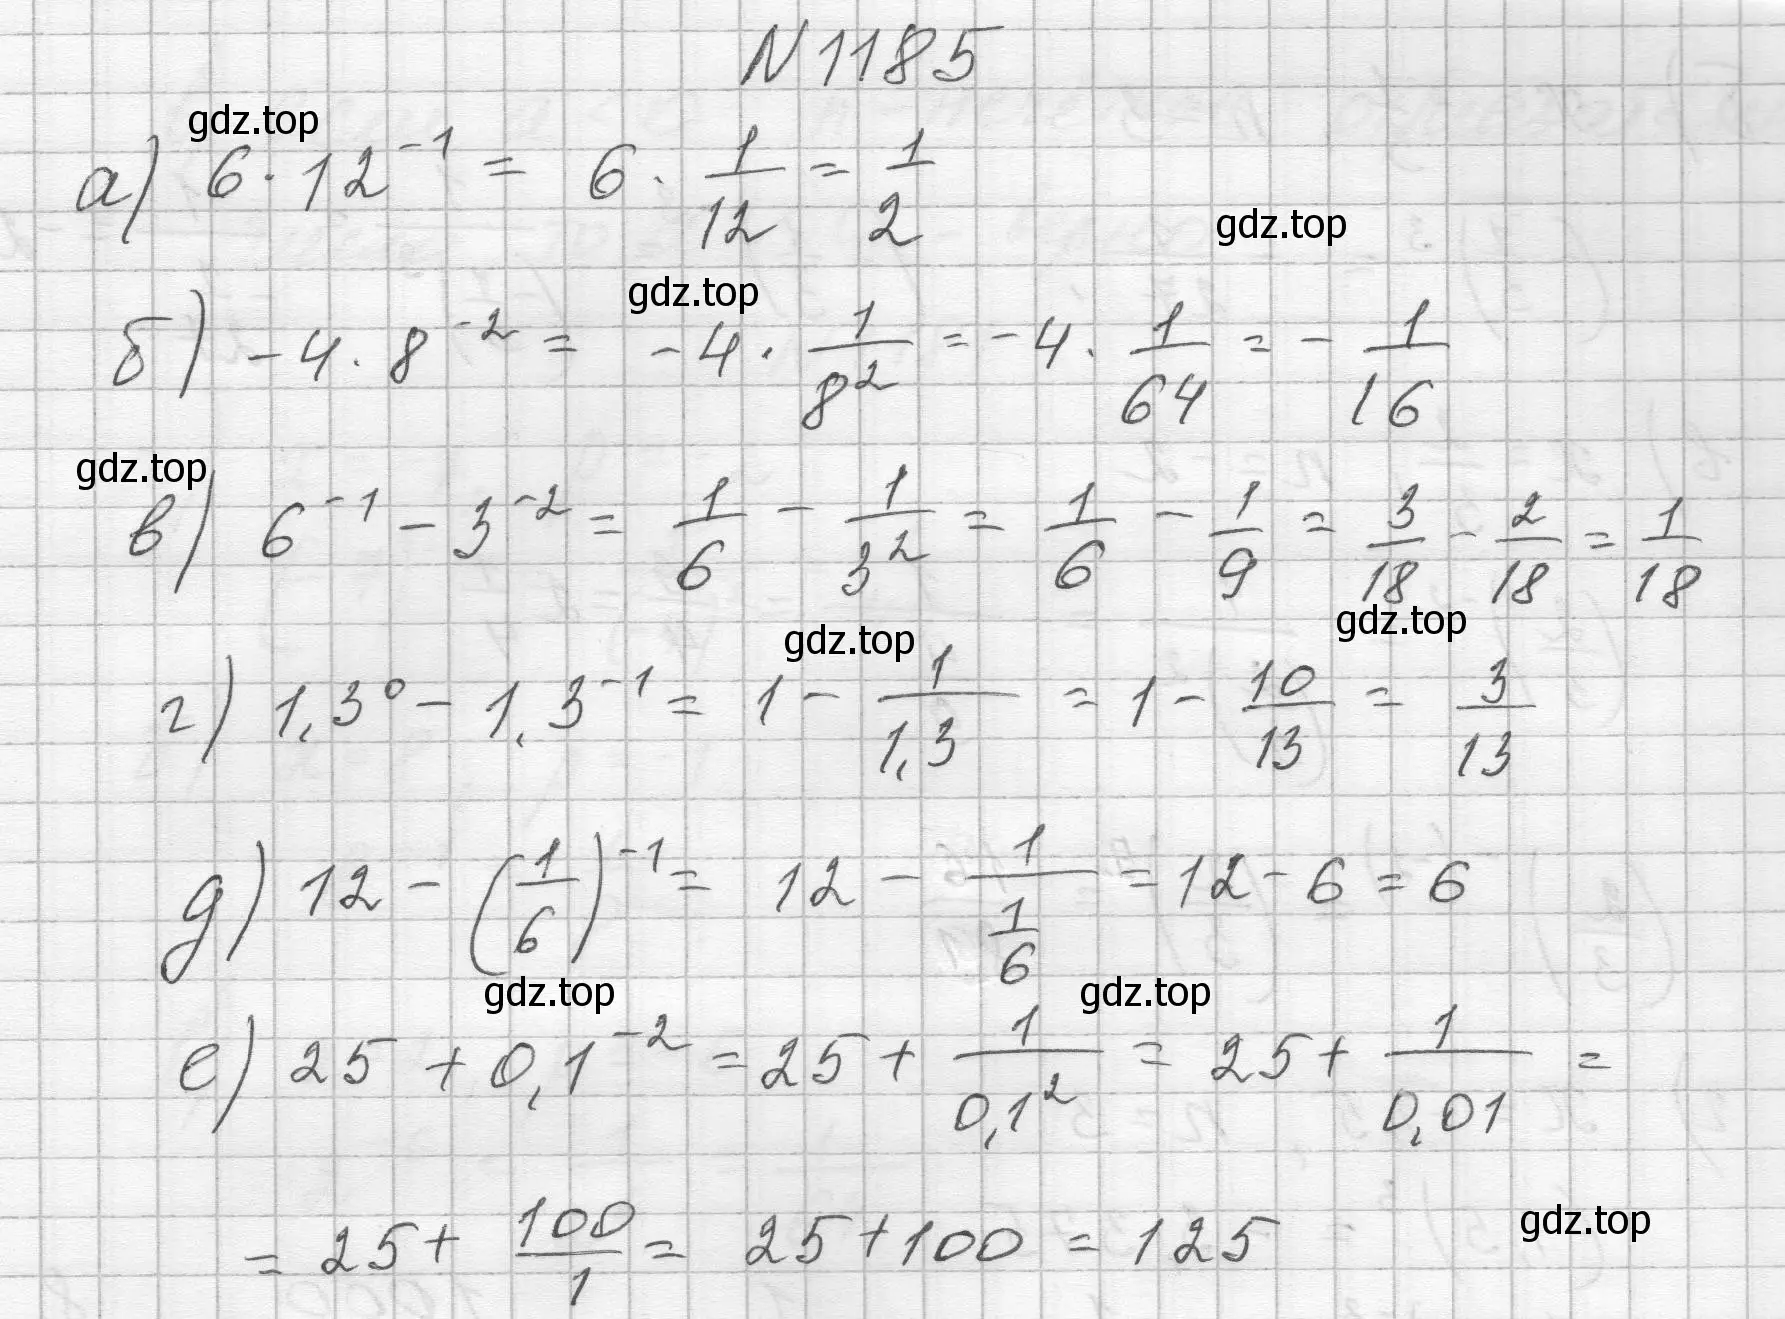 N 1185
gdz.top
а) 6 · 12⁻¹ = 6 · 1/12 = 1/2
gdz.top
gdz.top
б) -4 · 8⁻² = -4 · 1/8² = -4 · 1/64 = - 1/16
gdz.top
в) 6⁻¹ - 3⁻² = 1/6 - 1/3² = 1/6 - 1/9 = 3/18 - 2/18 = 1/18
gdz.top
gdz.top
г) 1,3⁰ - 1,3⁻¹ = 1 - 1/1,3 = 1 - 10/13 = 3/13
д) 12 - (1/6)⁻¹ = 12 - 1/(1/6) = 12 - 6 = 6
gdz.top
gdz.top
е) 25 + 0,1⁻² = 25 + 1/0,1² = 25 + 1/0,01 =
= 25 + 100/1 = 25 + 100 = 125
gdz.top